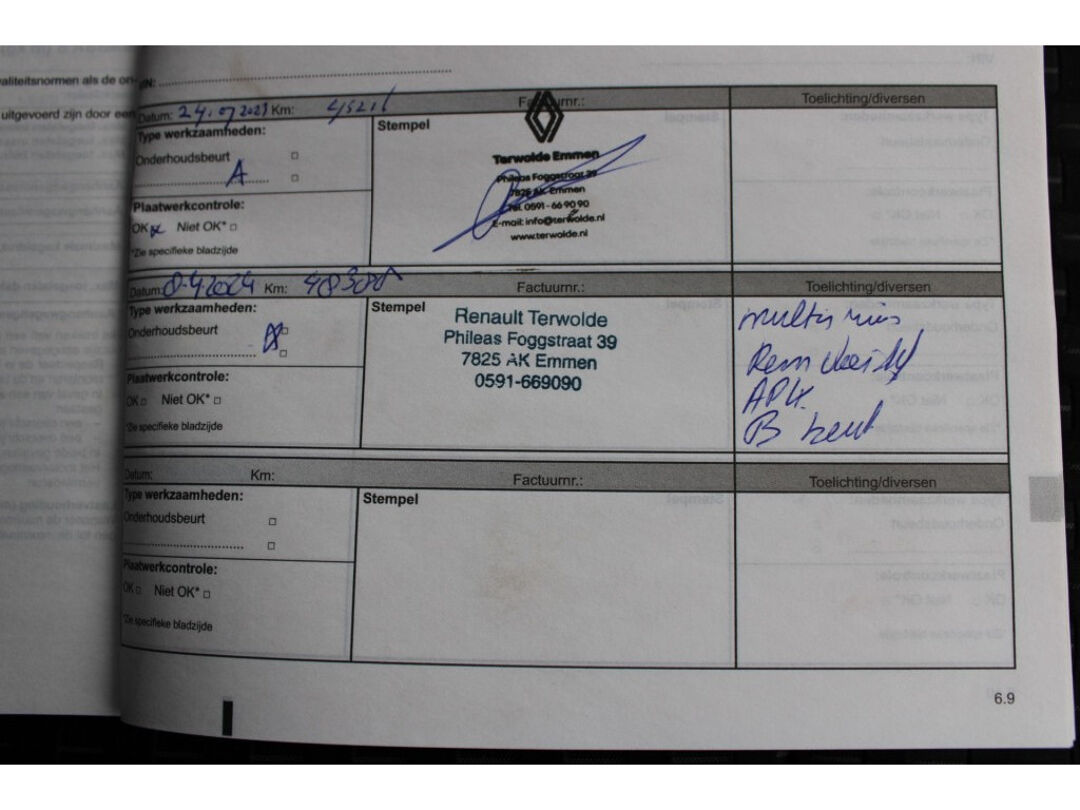 waliteitsnormen als de on-
uitgevoerd zijn door een
VIN:
Datum: 24.07.2023 Km: 45211 Factuurnr.: Toelichting/diversen
Type werkzaamheden:
Stempel
Onderhoudsbeurt
A
Plaatwerkcontrole:
OK x Niet OK*
*Zie specifieke bladzijde
Terwolde Emmen
Phileas Foggstraat 39
7825 AK Emmen
Tel. 0591-66 90 90
E-mail: info@terwolde.nl
www.terwolde.nl
Datum: 8.4.2024 Km: Factuurnr.: Toelichting/diversen
Type werkzaamheden:
Stempel
Onderhoudsbeurt
Plaatwerkcontrole:
OK Niet OK*
*Zie specifieke bladzijde
Renault Terwolde
Phileas Foggstraat 39
7825 AK Emmen
0591-669090
APK
B beurt
Datum: Km: Factuurnr.: Toelichting/diversen
Type werkzaamheden:
Stempel
Onderhoudsbeurt
Plaatwerkcontrole:
OK Niet OK*
*Zie specifieke bladzijde
6.9